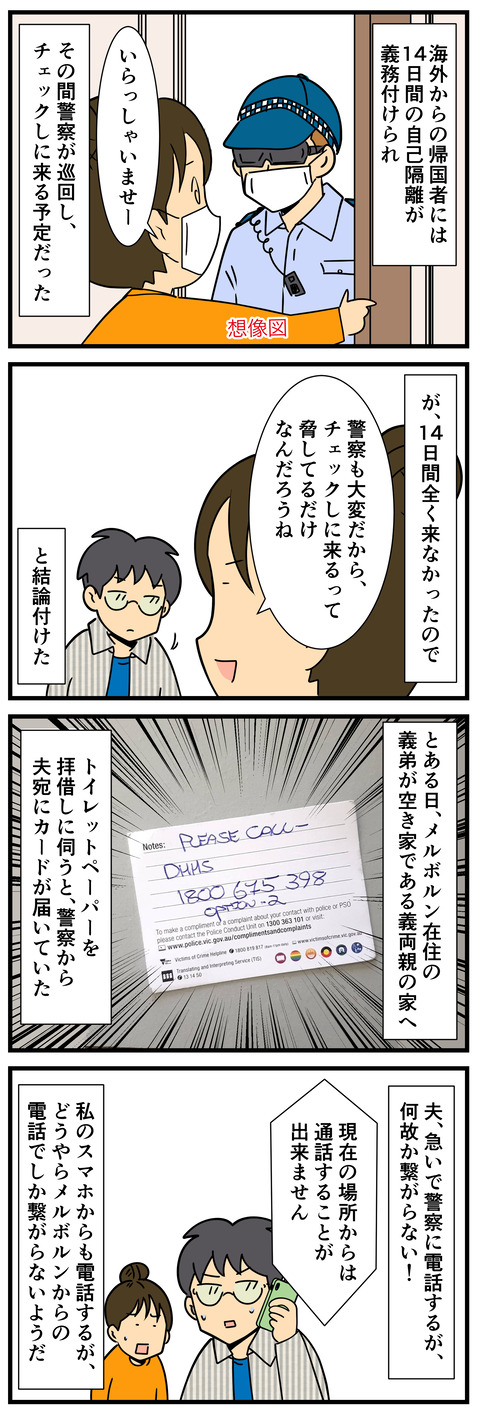 海外からの帰国者には
14日間の自己隔離が
義務付けられ
いらっしゃいませー
その間警察が巡回し、
チェックしに来る予定だった
想像図
が、14日間全く来なかったので
警察も大変だから、
チェックしに来るって
脅してるだけ
なんだろうね
と結論付けた
とある日、メルボルン在住の
義弟が空き家である義両親の家へ
トイレットペーパーを
拝借しに伺うと、警察から
夫宛にカードが届いていた
Notes: PLEASE CALL-
DHHS
1800 675 398
OPTION-2
To make a compliment or complaint about your contact with police or PSO
please contact the Police Conduct Unit on 1300 363 101 or visit:
www.police.vic.gov.au/complimentsandcomplaints
Victims of Crime Helpline 1800 819 817 www.victimsofcrime.vic.gov.au
Translating and Interpreting Service (TIS)
13 14 50
夫、急いで警察に電話するが、
何故か繋がらない！
現在の場所からは
通話することが
出来ません
私のスマホからも電話するが、
どうやらメルボルンからの
電話でしか繋がらないようだ